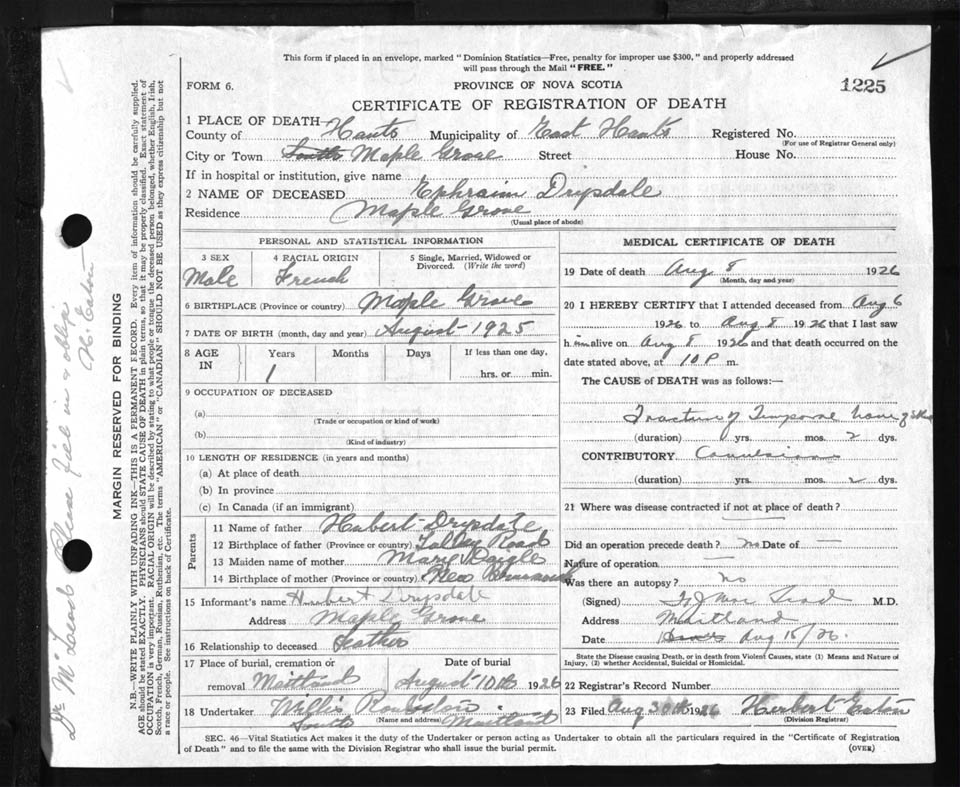 This form if placed in an envelope, marked "Dominion Statistics—Free, penalty for improper use $300," and properly addressed
will pass through the Mail "FREE."
FORM 6.
PROVINCE OF NOVA SCOTIA
1225
CERTIFICATE OF REGISTRATION OF DEATH
1 PLACE OF DEATH
County of Hants Municipality of East Hants Registered No.
(For use of Registrar General only)
City or Town South Maple Grove Street House No.
If in hospital or institution, give name
2 NAME OF DECEASED Ephraim Drysdale
Residence Maple Grove
(Usual place of abode)
PERSONAL AND STATISTICAL INFORMATION
3 SEX 4 RACIAL ORIGIN 5 Single, Married, Widowed or
Divorced. (Write the word)
Male French
6 BIRTHPLACE (Province or country) Maple Grove
7 DATE OF BIRTH (month, day and year) August 1925
8 AGE IN Years Months Days If less than one day,
1 hrs. or min.
9 OCCUPATION OF DECEASED
(a)
(Trade or occupation or kind of work)
(b)
(Kind of industry)
10 LENGTH OF RESIDENCE (in years and months)
(a) At place of death
(b) In province
(c) In Canada (if an immigrant)
Parents
11 Name of father Hubert Drysdale
12 Birthplace of father (Province or country) Road
13 Maiden name of mother Mary Daigle
14 Birthplace of mother (Province or country) New Brunswick
15 Informant's name Hubert Drysdale
Address Maple Grove
16 Relationship to deceased Father
17 Place of burial, cremation or Date of burial
removal Maitland August 10th 1926
18 Undertaker Willis
South Maitland
(Name and address)
MEDICAL CERTIFICATE OF DEATH
19 Date of death Aug 8 1926
(Month, day and year)
20 I HEREBY CERTIFY that I attended deceased from Aug 6
1926 to Aug 8 1926 that I last saw
him alive on Aug 8 1926 and that death occurred on the
date stated above, at 10 P m.
The CAUSE of DEATH was as follows:—
Fracture of bone of
(duration) yrs. mos. 2 dys.
CONTRIBUTORY Convulsions
(duration) yrs. mos. 2 dys.
21 Where was disease contracted if not at place of death?
Did an operation precede death? no Date of —
Nature of operation —
Was there an autopsy? no
(Signed) M.D.
Address Maitland
Date Aug 15/26.
State the Disease causing Death, or in death from Violent Causes, state (1) Means and Nature of
Injury, (2) whether Accidental, Suicidal or Homicidal.
22 Registrar's Record Number
23 Filed Aug 30th 1926 Herbert Eaton
(Division Registrar)
SEC. 46—Vital Statistics Act makes it the duty of the Undertaker or person acting as Undertaker to obtain all the particulars required in the "Certificate of Registration
of Death" and to file the same with the Division Registrar who shall issue the burial permit.
(OVER)
MARGIN RESERVED FOR BINDING
N.B.—WRITE PLAINLY WITH UNFADING INK—THIS IS A PERMANENT RECORD. Every item of information should be carefully supplied.
AGE should be stated EXACTLY. PHYSICIANS should STATE CAUSE OF DEATH in plain terms, so that it may be properly classified. Exact statement of
OCCUPATION is very important. RACIAL ORIGIN will be described by stating to what people or tongue the deceased person belonged, whether English, Irish,
Scotch, French, German, Russian, Ruthenian, etc. The terms "AMERICAN" or "CANADIAN" SHOULD NOT BE USED as they express citizenship but not
a race or people. See instructions on back of Certificate.
Please fill in & oblige
H. Eaton